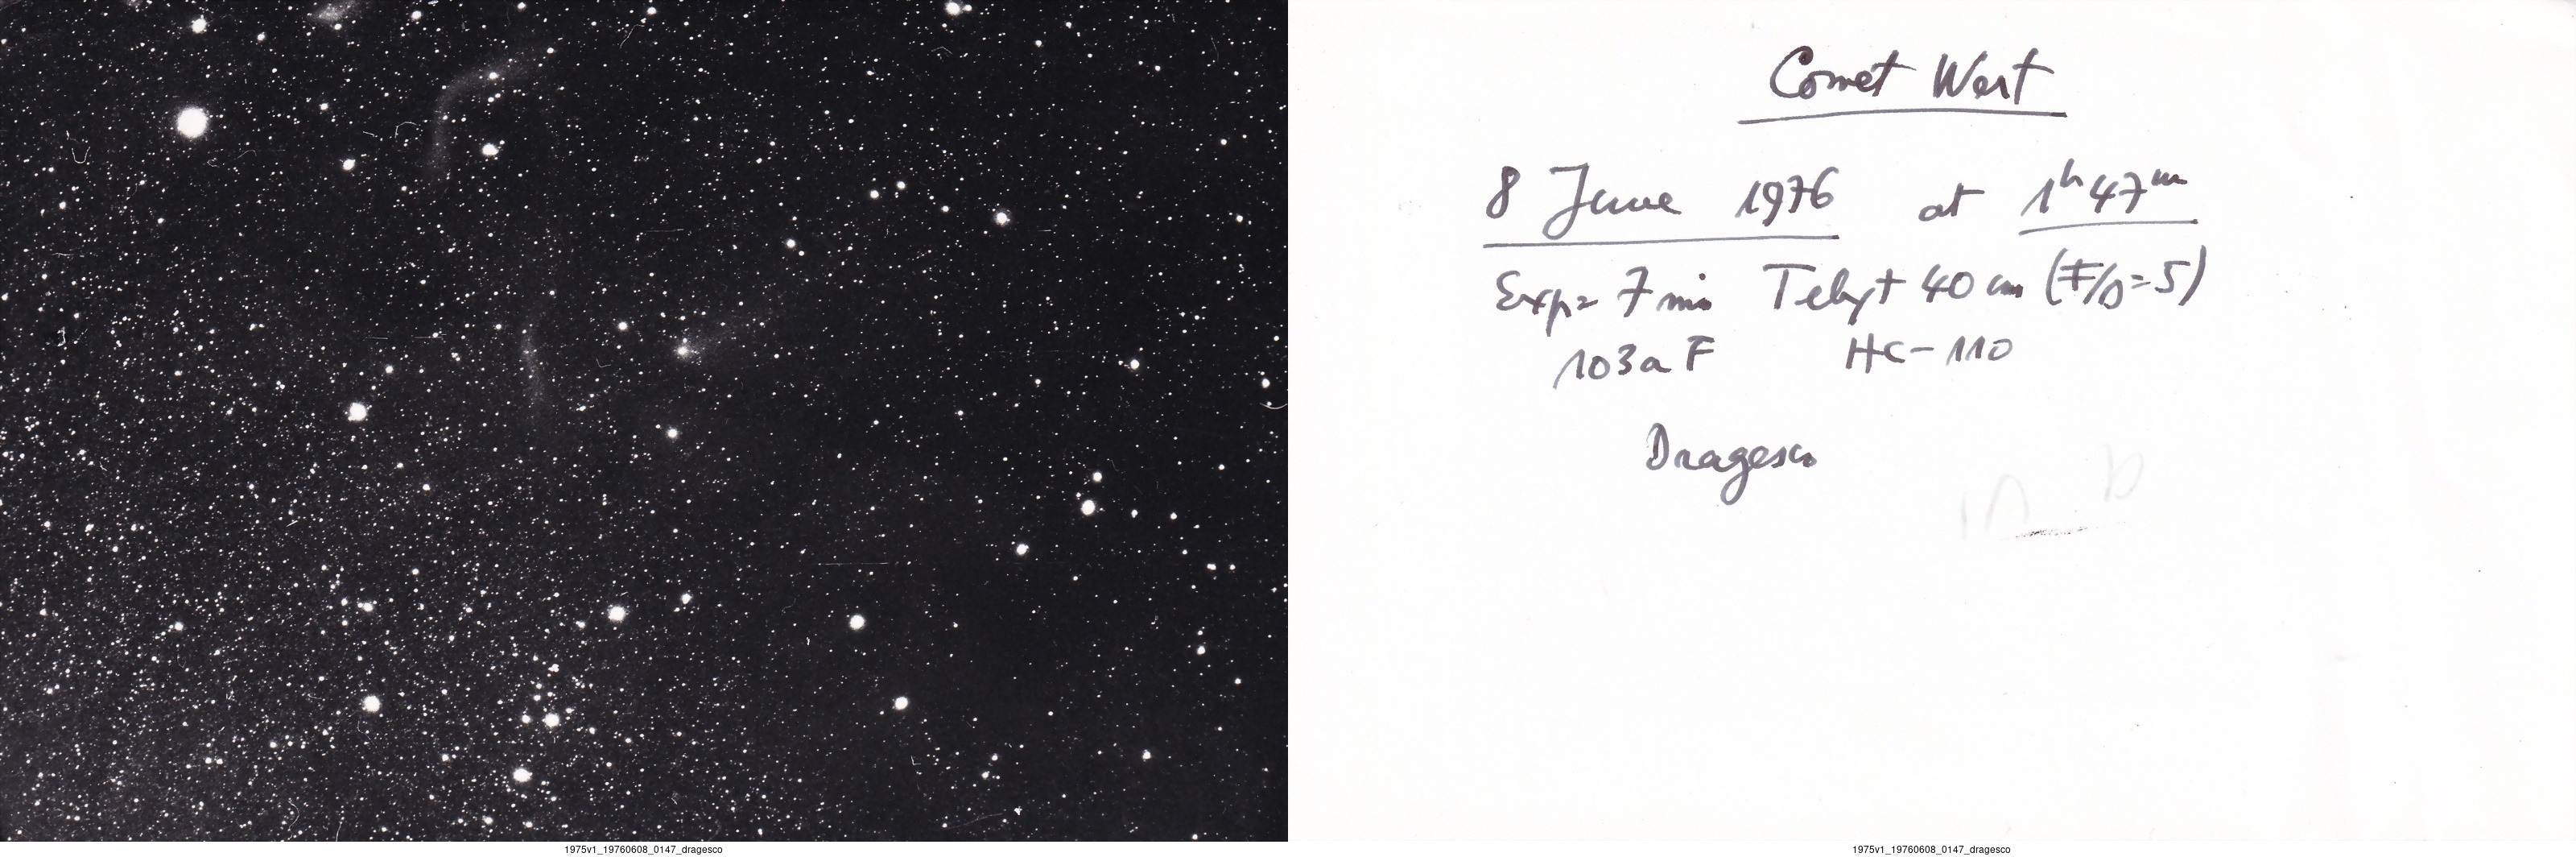 Comet West
8 June 1976 at 1h47m
Exp= 7 min Telyt 40 cm (F/D=5)
103a F HC-110
Dragesco
1975v1_19760608_0147_dragesco
1975v1_19760608_0147_dragesco